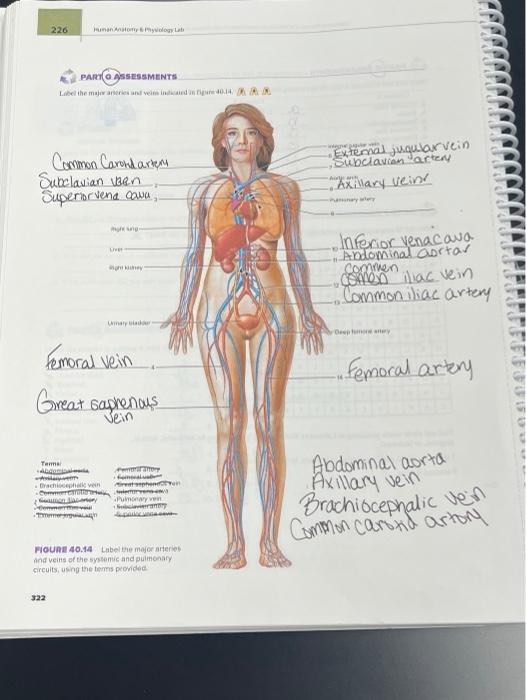 226
Human Anatomy & Physiology Lab
PART G ASSESSMENTS
Label the major arteries and veins indicated in figure 40.14.
Common Carotid artery
Subclavian vein
Superor vena cava
External jugular vein
Subclavian artery
Axillary vein
Pulmonary artery
Right lung
Liver
Right kidney
Inferior vena cava
Abdominal aorta
common
iliac vein
Common iliac artery
Urinary bladder
Deep femoral artery
femoral vein
Femoral artery
Great saphenous
vein
Terms:
Abdominal aorta
Axillary vein
Brachiocephalic vein
Common carotid artery
Common iliac artery
Common iliac vein
External jugular vein
Femoral artery
Femoral vein
Great saphenous vein
Inferior vena cava
Pulmonary vein
Subclavian artery
Superior vena cava
Abdominal aorta
Axillary vein
Brachiocephalic vein
Common carotid artory
FIGURE 40.14 Label the major arteries
and veins of the systemic and pulmonary
circuits, using the terms provided.
322